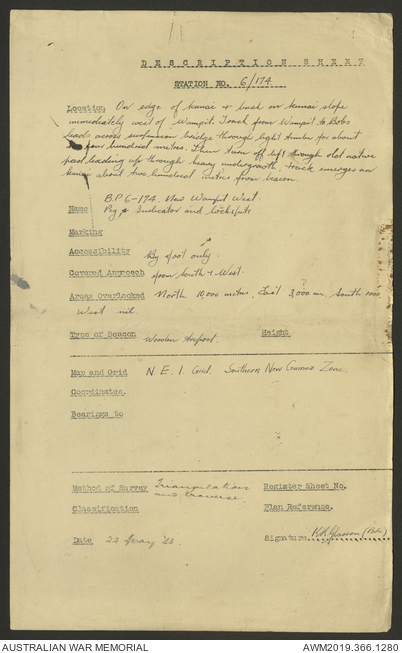 DESCRIPTION SHEET
STATION NO. 6/174
Location On edge of kunai & bush on kunai slope
immediately west of Wampit. Track from Wampit to Bobs
leads across suspension bridge through light timber for about
four hundred metres. Then turn off left through old native
pad leading up through heavy undergrowth, track emerges on
kunai about two hundred metres from beacon.
B.P. 6-174. New Wampit West.
Name Peg & Indicator and lockspits
Marking
Accessibility By foot only.
Covered Approach from South & West.
Areas Overlooked North 10,000 metres, East 3,000 South 1000
West nil.
Type of Beacon Wooden tripod. Height
Map and Grid N.E.I. Grid. Southern New Guinea Zone.
Coordinates.
Bearings to
Method of Survey Triangulation Register Sheet No.
and traverse.
Classification Plan Reference.
Date 22 '43. Signature
AUSTRALIAN WAR MEMORIAL AWM2019.366.1280